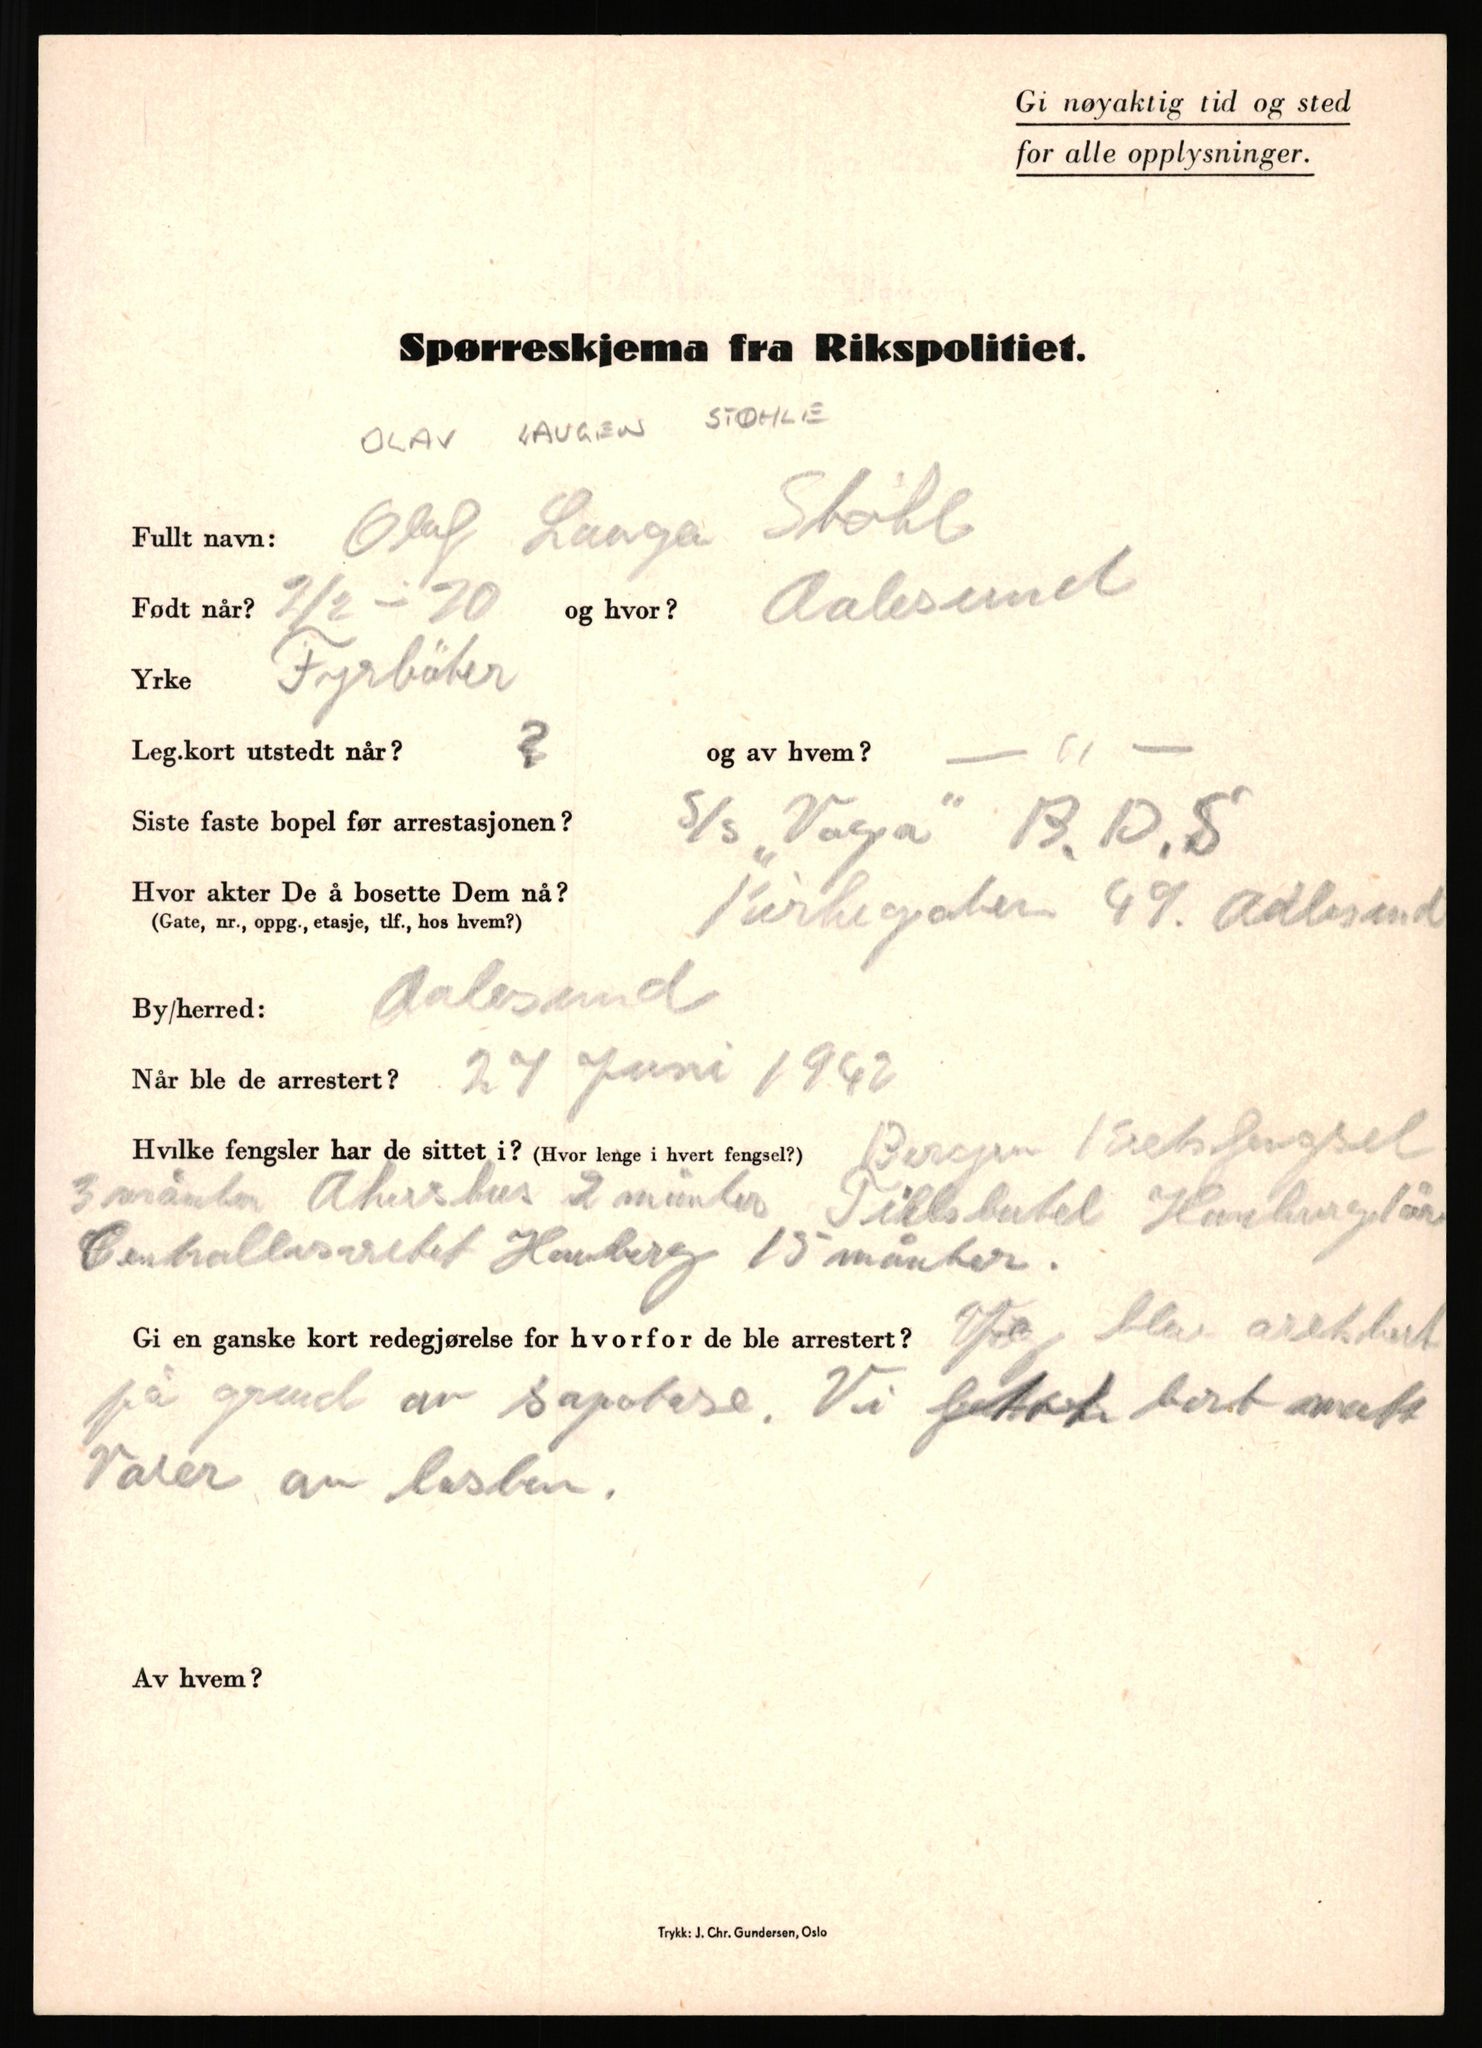 Gi nøyaktig tid og sted
for alle opplysninger.
Spørreskjema fra Rikspolitiet.
OLAV LAUGEN STØHLE
Fullt navn: Olaf Lauga Støhl
Født når? 2/2 - 20 og hvor? Aalesund
Yrke Fyrböter
Leg.kort utstedt når? ? og av hvem? — " —
Siste faste bopel før arrestasjonen? S/s „Vaga" B.D.S
Hvor akter De å bosette Dem nå? Kirkegaten 49. Aalesund
(Gate, nr., oppg., etasje, tlf., hos hvem?)
By/herred: Aalesund
Når ble de arrestert? 27 Juni 1942
Hvilke fengsler har de sittet i? (Hvor lenge i hvert fengsel?) Bergen Kretsfengsel
3 månter Akershus 2 månter Hamburg 1 år
Centrallasaretet Hamberg 15 månter.
Gi en ganske kort redegjørelse for hvorfor de ble arrestert? blev arestert
på grund av sapotase. Vi bort matt
Varer av lasten.
Av hvem?
Trykk: J. Chr. Gundersen, Oslo